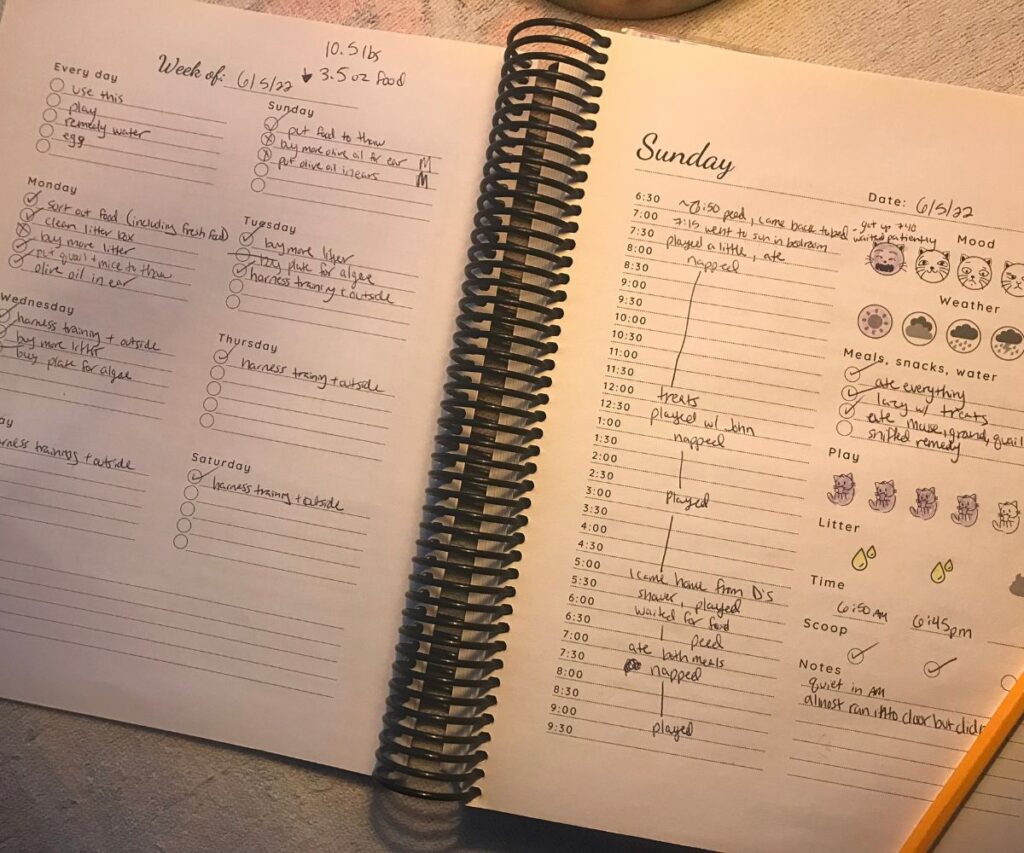 10.5 lbs
Week of: 6/5/22 ↓ 3.5 oz food
Every day
use this
play
remedy water
egg
Sunday
put food to thaw
buy more olive oil for ear M
put olive oil in ears M
Monday
sort out food (including fresh food)
clean litter box
buy more litter
put quail + mice to thaw
olive oil in ear
Tuesday
buy more litter
buy plate for algae
harness training + outside
Wednesday
harness training + outside
buy more litter
buy plate for algae
Thursday
harness training + outside
ay
rness trainings + outside
Saturday
harness training + outside
Sunday
6:30 ~6:50 peed, came back to bed - got up 7:10
7:00 7:15 went to sun in bedroom waited patiently
7:30 played a little, ate
8:00 napped
8:30
9:00
9:30
10:00
10:30
11:00
11:30
12:00 treats
12:30 played w/ John
1:00 napped
1:30
2:00
2:30
3:00 played
3:30
4:00
4:30
5:00 I came home from D's
5:30 shower, played
6:00 waited for food
6:30 peed
7:00 ate both meals
7:30 napped
8:00
8:30
9:00 played
9:30
Date: 6/5/22
Mood
Weather
Meals, snacks, water
ate everything
lazy w/ treats
ate mouse, ground, quail
sniffed remedy
Play
Litter
Time
6:50 AM 6:45pm
Scoop
Notes
quiet in AM
almost ran into door but didn